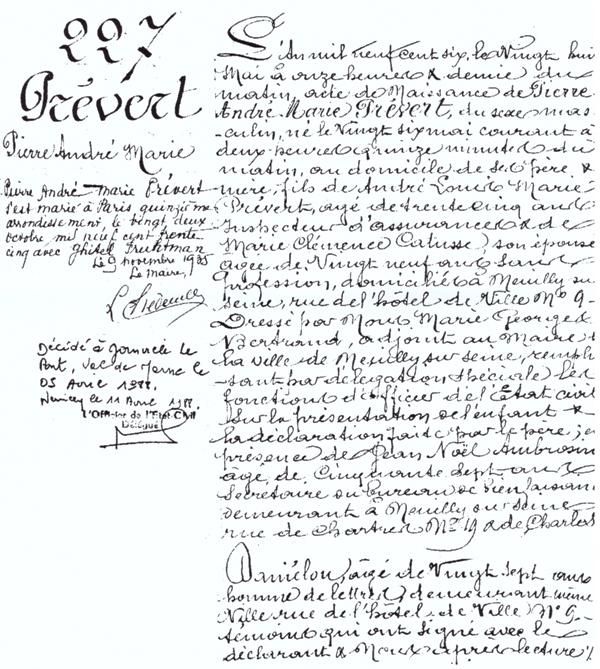 227
Prévert
Pierre André Marie
Pierre André Marie Prévert
s'est marié à Paris, quinzième
arrondissement, le vingt deux
octobre mil neuf cent trente
cinq avec Ghitel Fruhtman
Le 9 novembre 1935
Le Maire,
Décédé à Joinville le
Pont, Val de Marne le
05 Avril 1988.
le 11 Avril 1988.
L'Officier de l'Etat Civil
Délégué
L'An mil neuf cent six, le Vingt huit
Mai à onze heures & demie du
matin, acte de Naissance de Pierre
André Marie Prévert, du sexe mas-
culin, né le Vingt six mai courant à
deux heures quinze minutes du
matin, au domicile de ses père &
mère; fils de André Louis Marie
Prévert, âgé de trente cinq ans
Inspecteur d'assurances & de
Marie Clémence Catusse, son épouse
âgée de Vingt neuf ans sans
profession, domiciliés à Neuilly sur
seine, rue de l'hôtel de Ville No 9-
Dressé par Nous Marie Georges
Bertrand, adjoint au Maire de
la ville de Neuilly sur seine, rempli-
-sant par délégation spéciale les
fonctions d'officier de l'État civil
Sur la présentation de l'enfant &
la déclaration faite par le père; en
présence de Jean Noël Ambrosini
âgé de Cinquante sept ans
Secrétaire au bureau de bienfaisance
demeurant à Neuilly sur seine
rue de Chartres No 19 & de Charles
Daniélou, âgé de Vingt sept ans
homme de lettres, demeurant même
Ville rue de l'hôtel de Ville No 9-
témoins qui ont signé avec le
déclarant & Nous après lecture